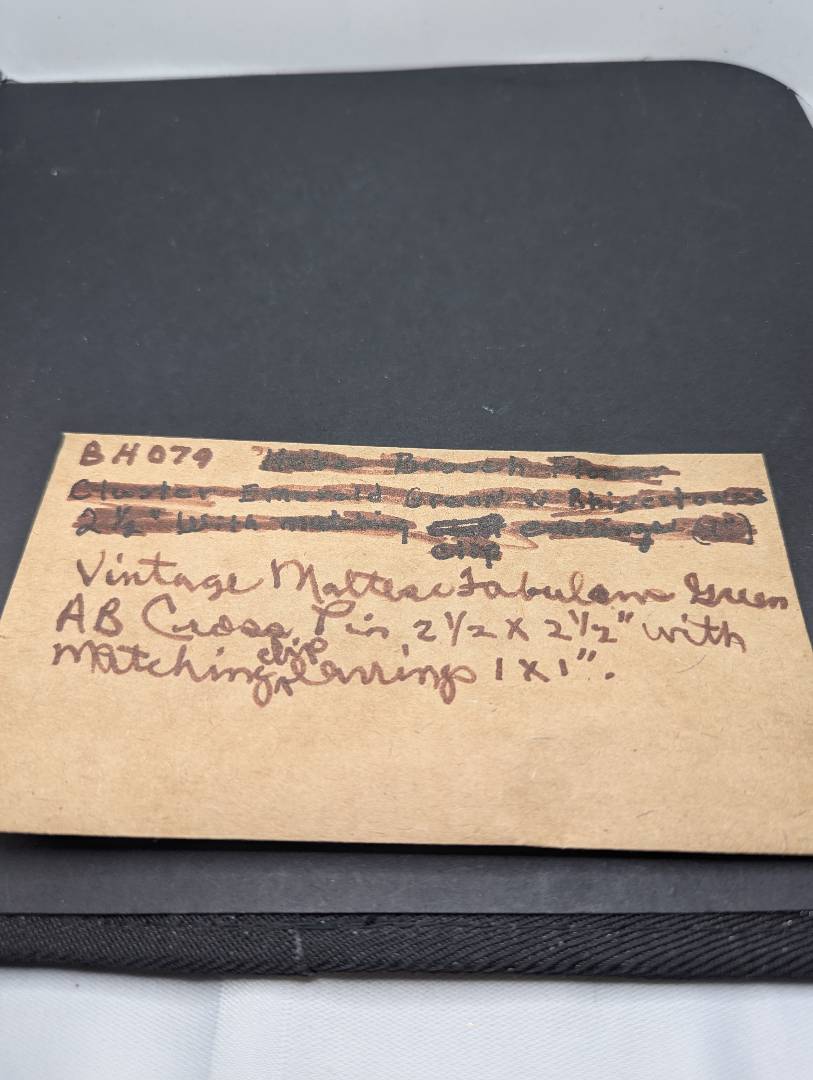 BH079 Brooch Flower
Cluster Emerald Green Rhinestones
2 1/2" with matching earrings
clip
Vintage Maltese Fabulous Green
AB Cross Pin 2 1/2 x 2 1/2" with
clip
Matching ^ Earrings 1 x 1".